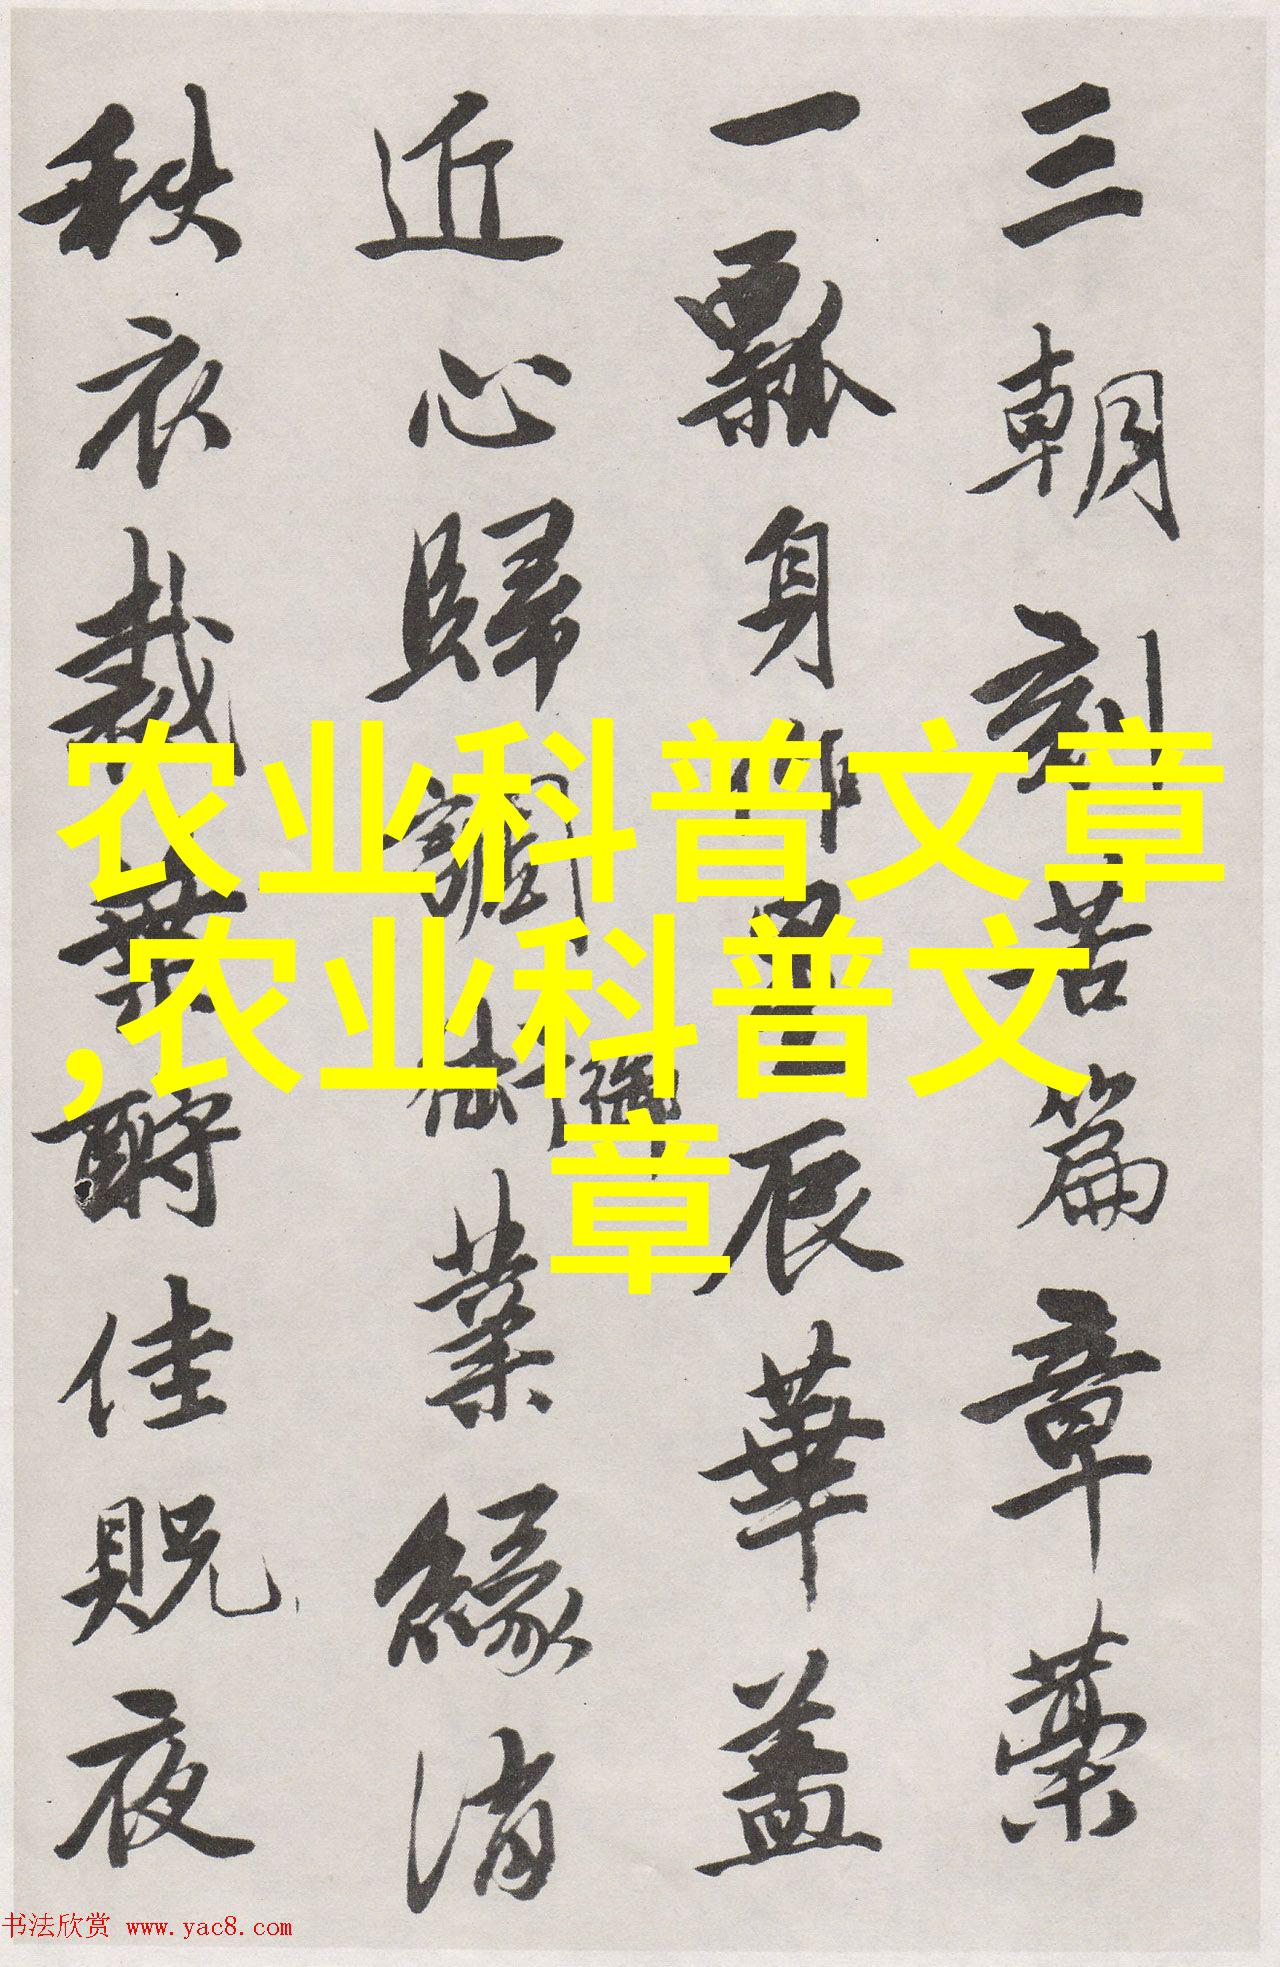 三朝刻苦篇章藁
一瓢身辰華蓋
近心歸業緣消
衣裁酧佳貺夜
农业科普文章
,农业科普文
章
书法欣赏 www.yac8.com